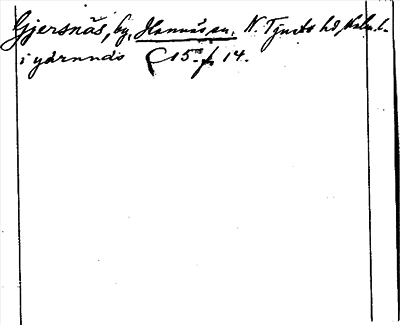 Gjersnäs, by, Hannäs sn, N. Tjusts hd, Kalm. l.
i gärnnäs 15 14.